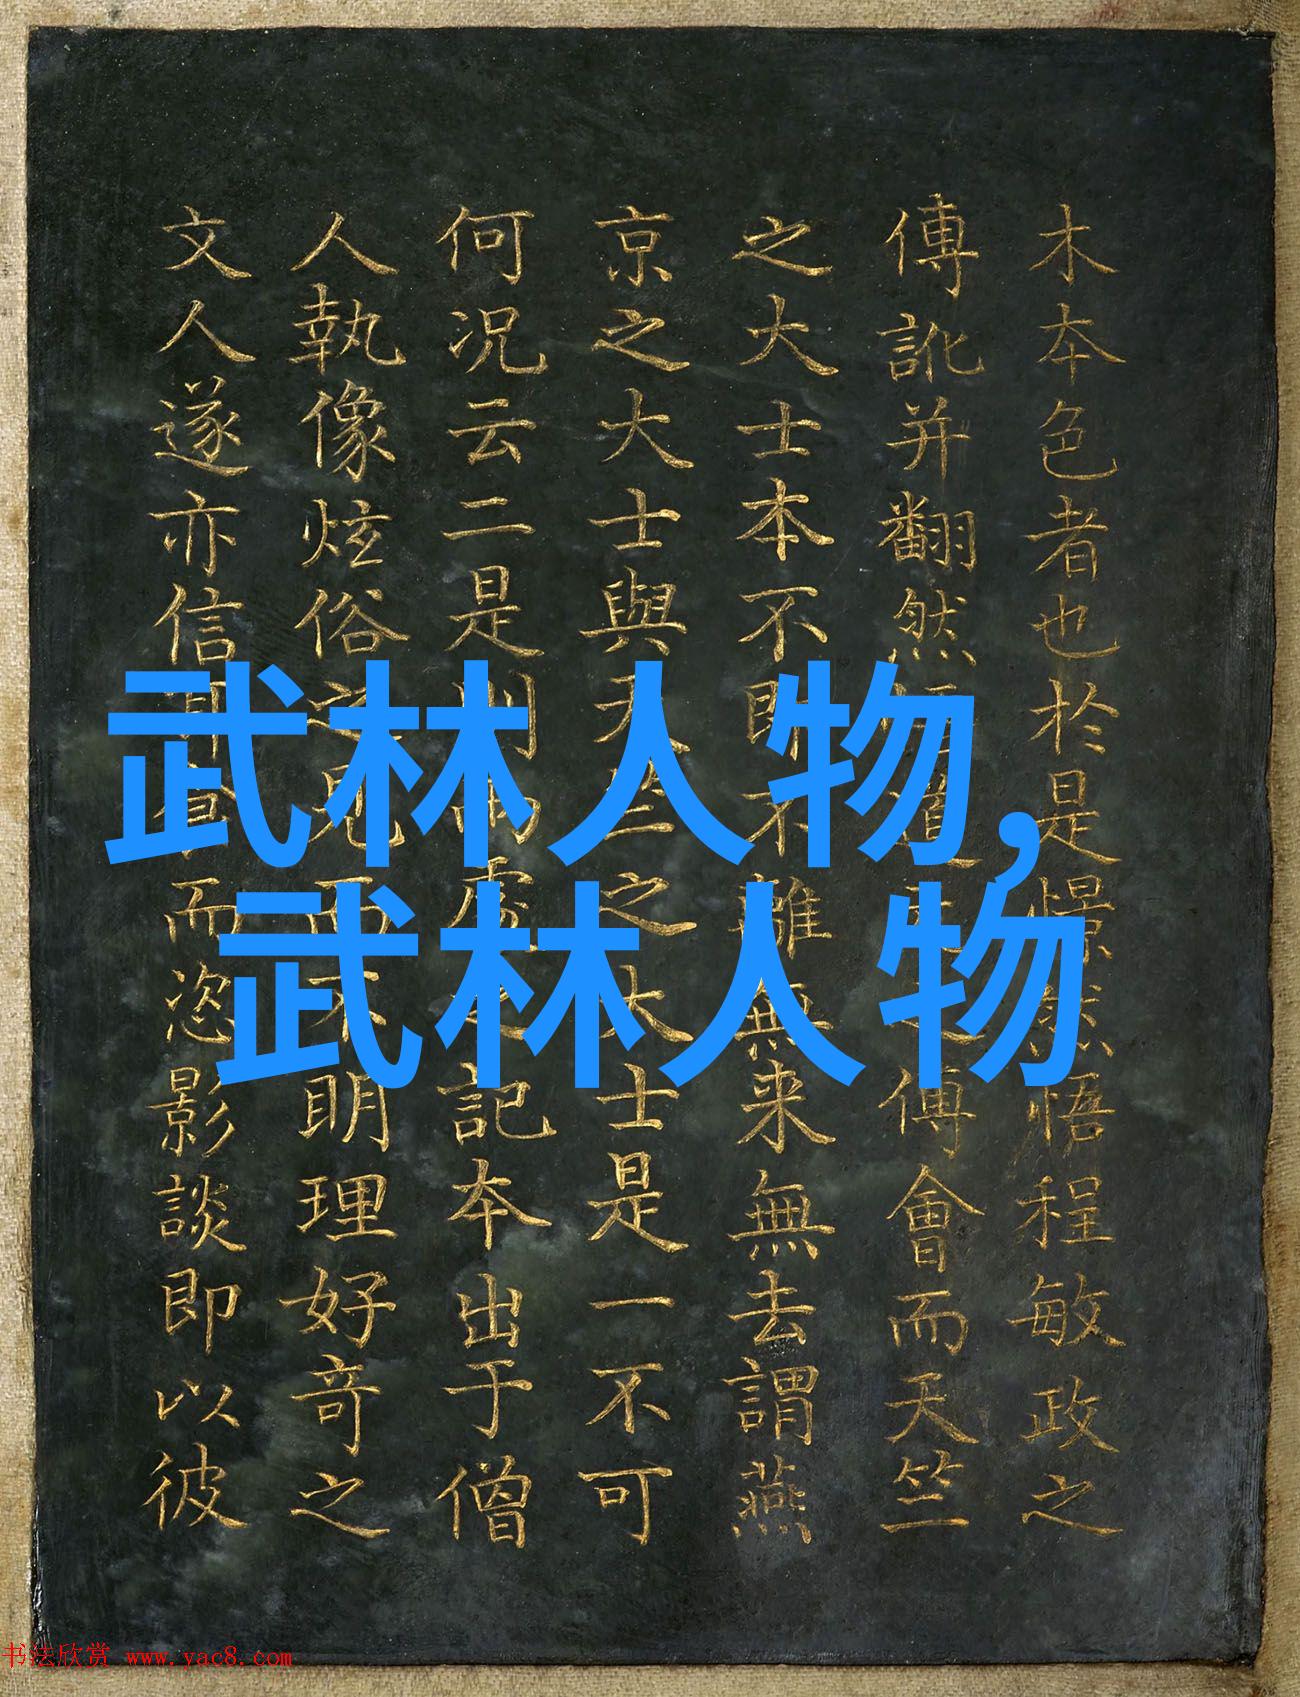 木本色者也於是憬然悟程敏政之
傳訛并翻然傅會而天竺
之大士本不即不離無來無去謂燕
京之大士與天竺之大士是一不可
何況云二是則兩處之記本出于僧
人執像炫俗之見而不明理好奇之
文人遂亦信耳食而恣影談即以彼
武林人物,
武林人物
书法欣赏 www.yac8.com